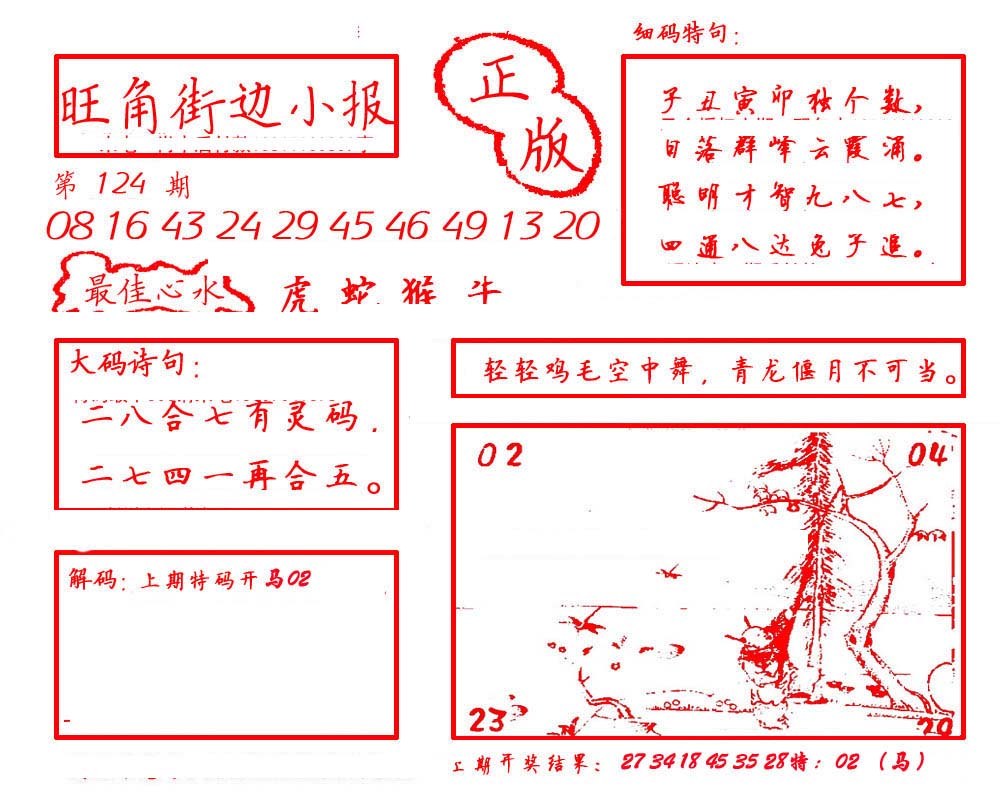 细码特句：
旺角街边小报
正版
子丑寅卯独个数，
日落群峰云霞涌。
聪明才智九八七，
四通八达兔子追。
第 124 期
08 16 43 24 29 45 46 49 13 20
最佳心水 虎 蛇 猴 牛
大码诗句：
二八合七有灵码.
二七四一再合五。
轻轻鸡毛空中舞，青龙偃月不可当。
02 04
23 20
解码：上期特码开马02
上期开奖结果： 27 34 18 45 35 28特：02 （马）